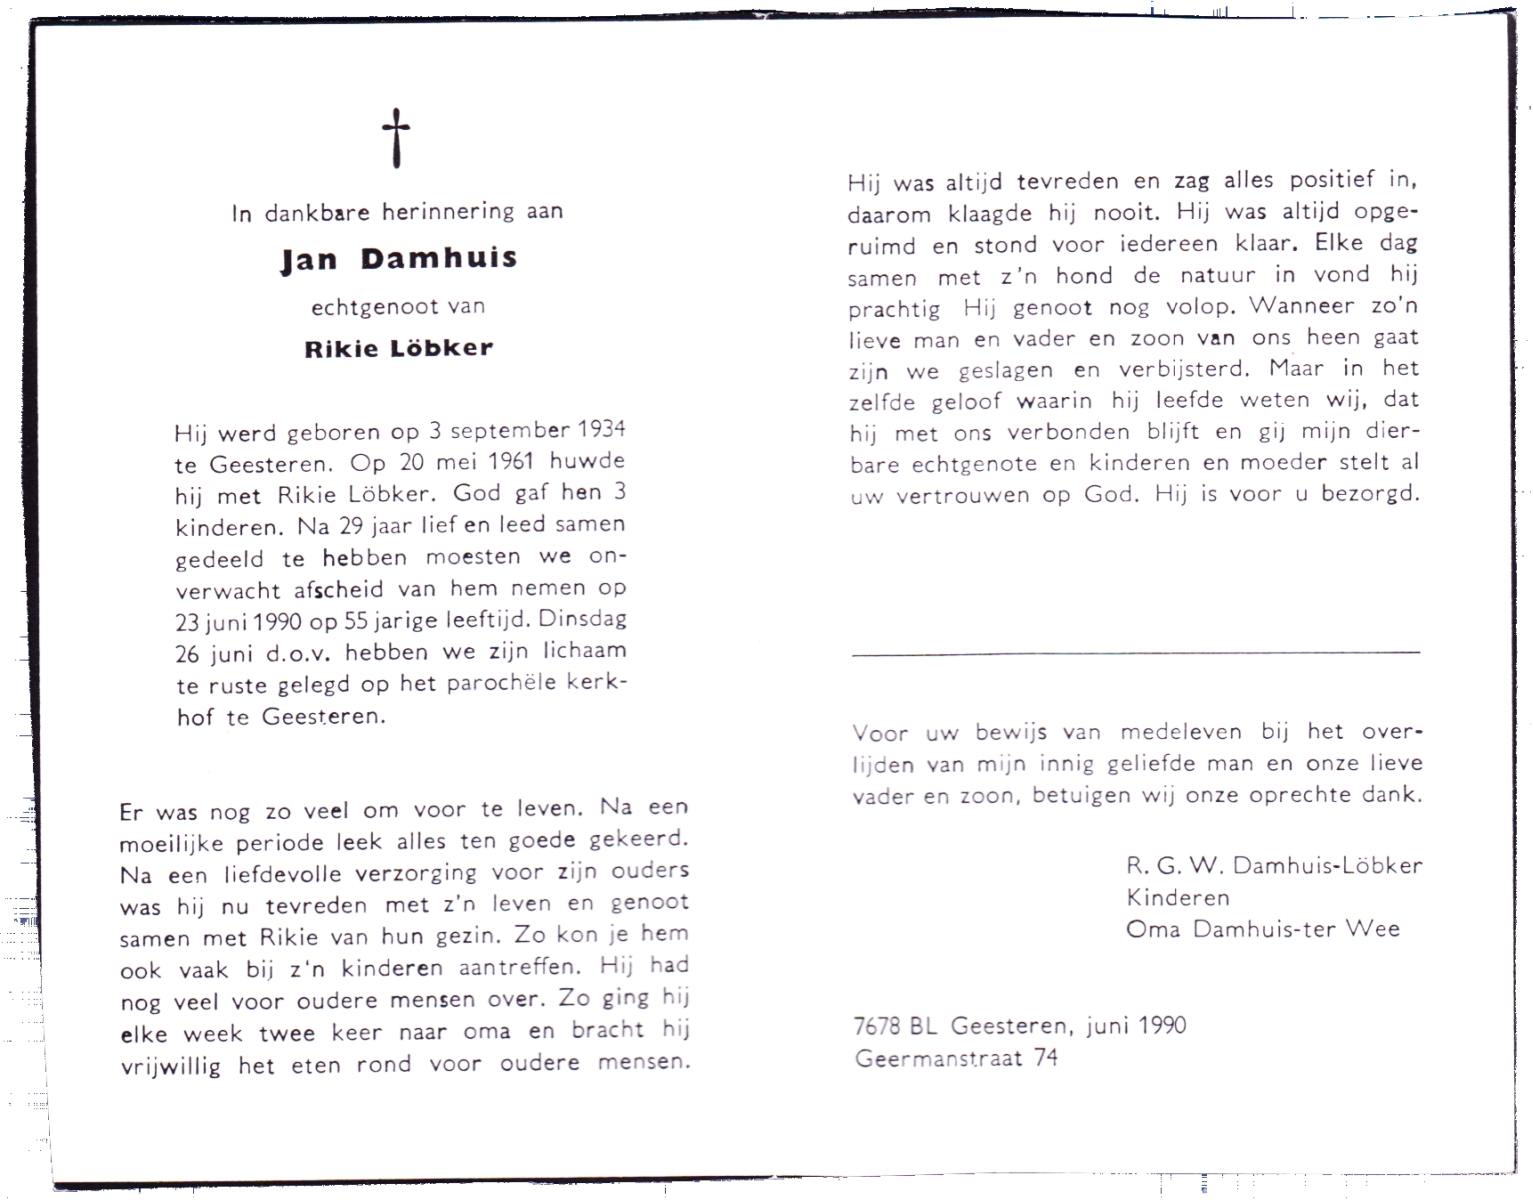 In dankbare herinnering aan
Jan Damhuis
echtgenoot van
Rikie Löbker
Hij werd geboren op 3 september 1934
te Geesteren. Op 20 mei 1961 huwde
hij met Rikie Löbker. God gaf hen 3
kinderen. Na 29 jaar lief en leed samen
gedeeld te hebben moesten we on-
verwacht afscheid van hem nemen op
23 juni 1990 op 55 jarige leeftijd. Dinsdag
26 juni d.o.v. hebben we zijn lichaam
te ruste gelegd op het parochële kerk-
hof te Geesteren.
Er was nog zo veel om voor te leven. Na een
moeilijke periode leek alles ten goede gekeerd.
Na een liefdevolle verzorging voor zijn ouders
was hij nu tevreden met z'n leven en genoot
samen met Rikie van hun gezin. Zo kon je hem
ook vaak bij z'n kinderen aantreffen. Hij had
nog veel voor oudere mensen over. Zo ging hij
elke week twee keer naar oma en bracht hij
vrijwillig het eten rond voor oudere mensen.
Hij was altijd tevreden en zag alles positief in,
daarom klaagde hij nooit. Hij was altijd opge-
ruimd en stond voor iedereen klaar. Elke dag
samen met z'n hond de natuur in vond hij
prachtig Hij genoot nog volop. Wanneer zo'n
lieve man en vader en zoon van ons heen gaat
zijn we geslagen en verbijsterd. Maar in het
zelfde geloof waarin hij leefde weten wij, dat
hij met ons verbonden blijft en gij mijn dier-
bare echtgenote en kinderen en moeder stelt al
uw vertrouwen op God. Hij is voor u bezorgd.
Voor uw bewijs van medeleven bij het over-
lijden van mijn innig geliefde man en onze lieve
vader en zoon, betuigen wij onze oprechte dank.
R. G. W. Damhuis-Löbker
Kinderen
Oma Damhuis-ter Wee
7678 BL Geesteren, juni 1990
Geermanstraat 74